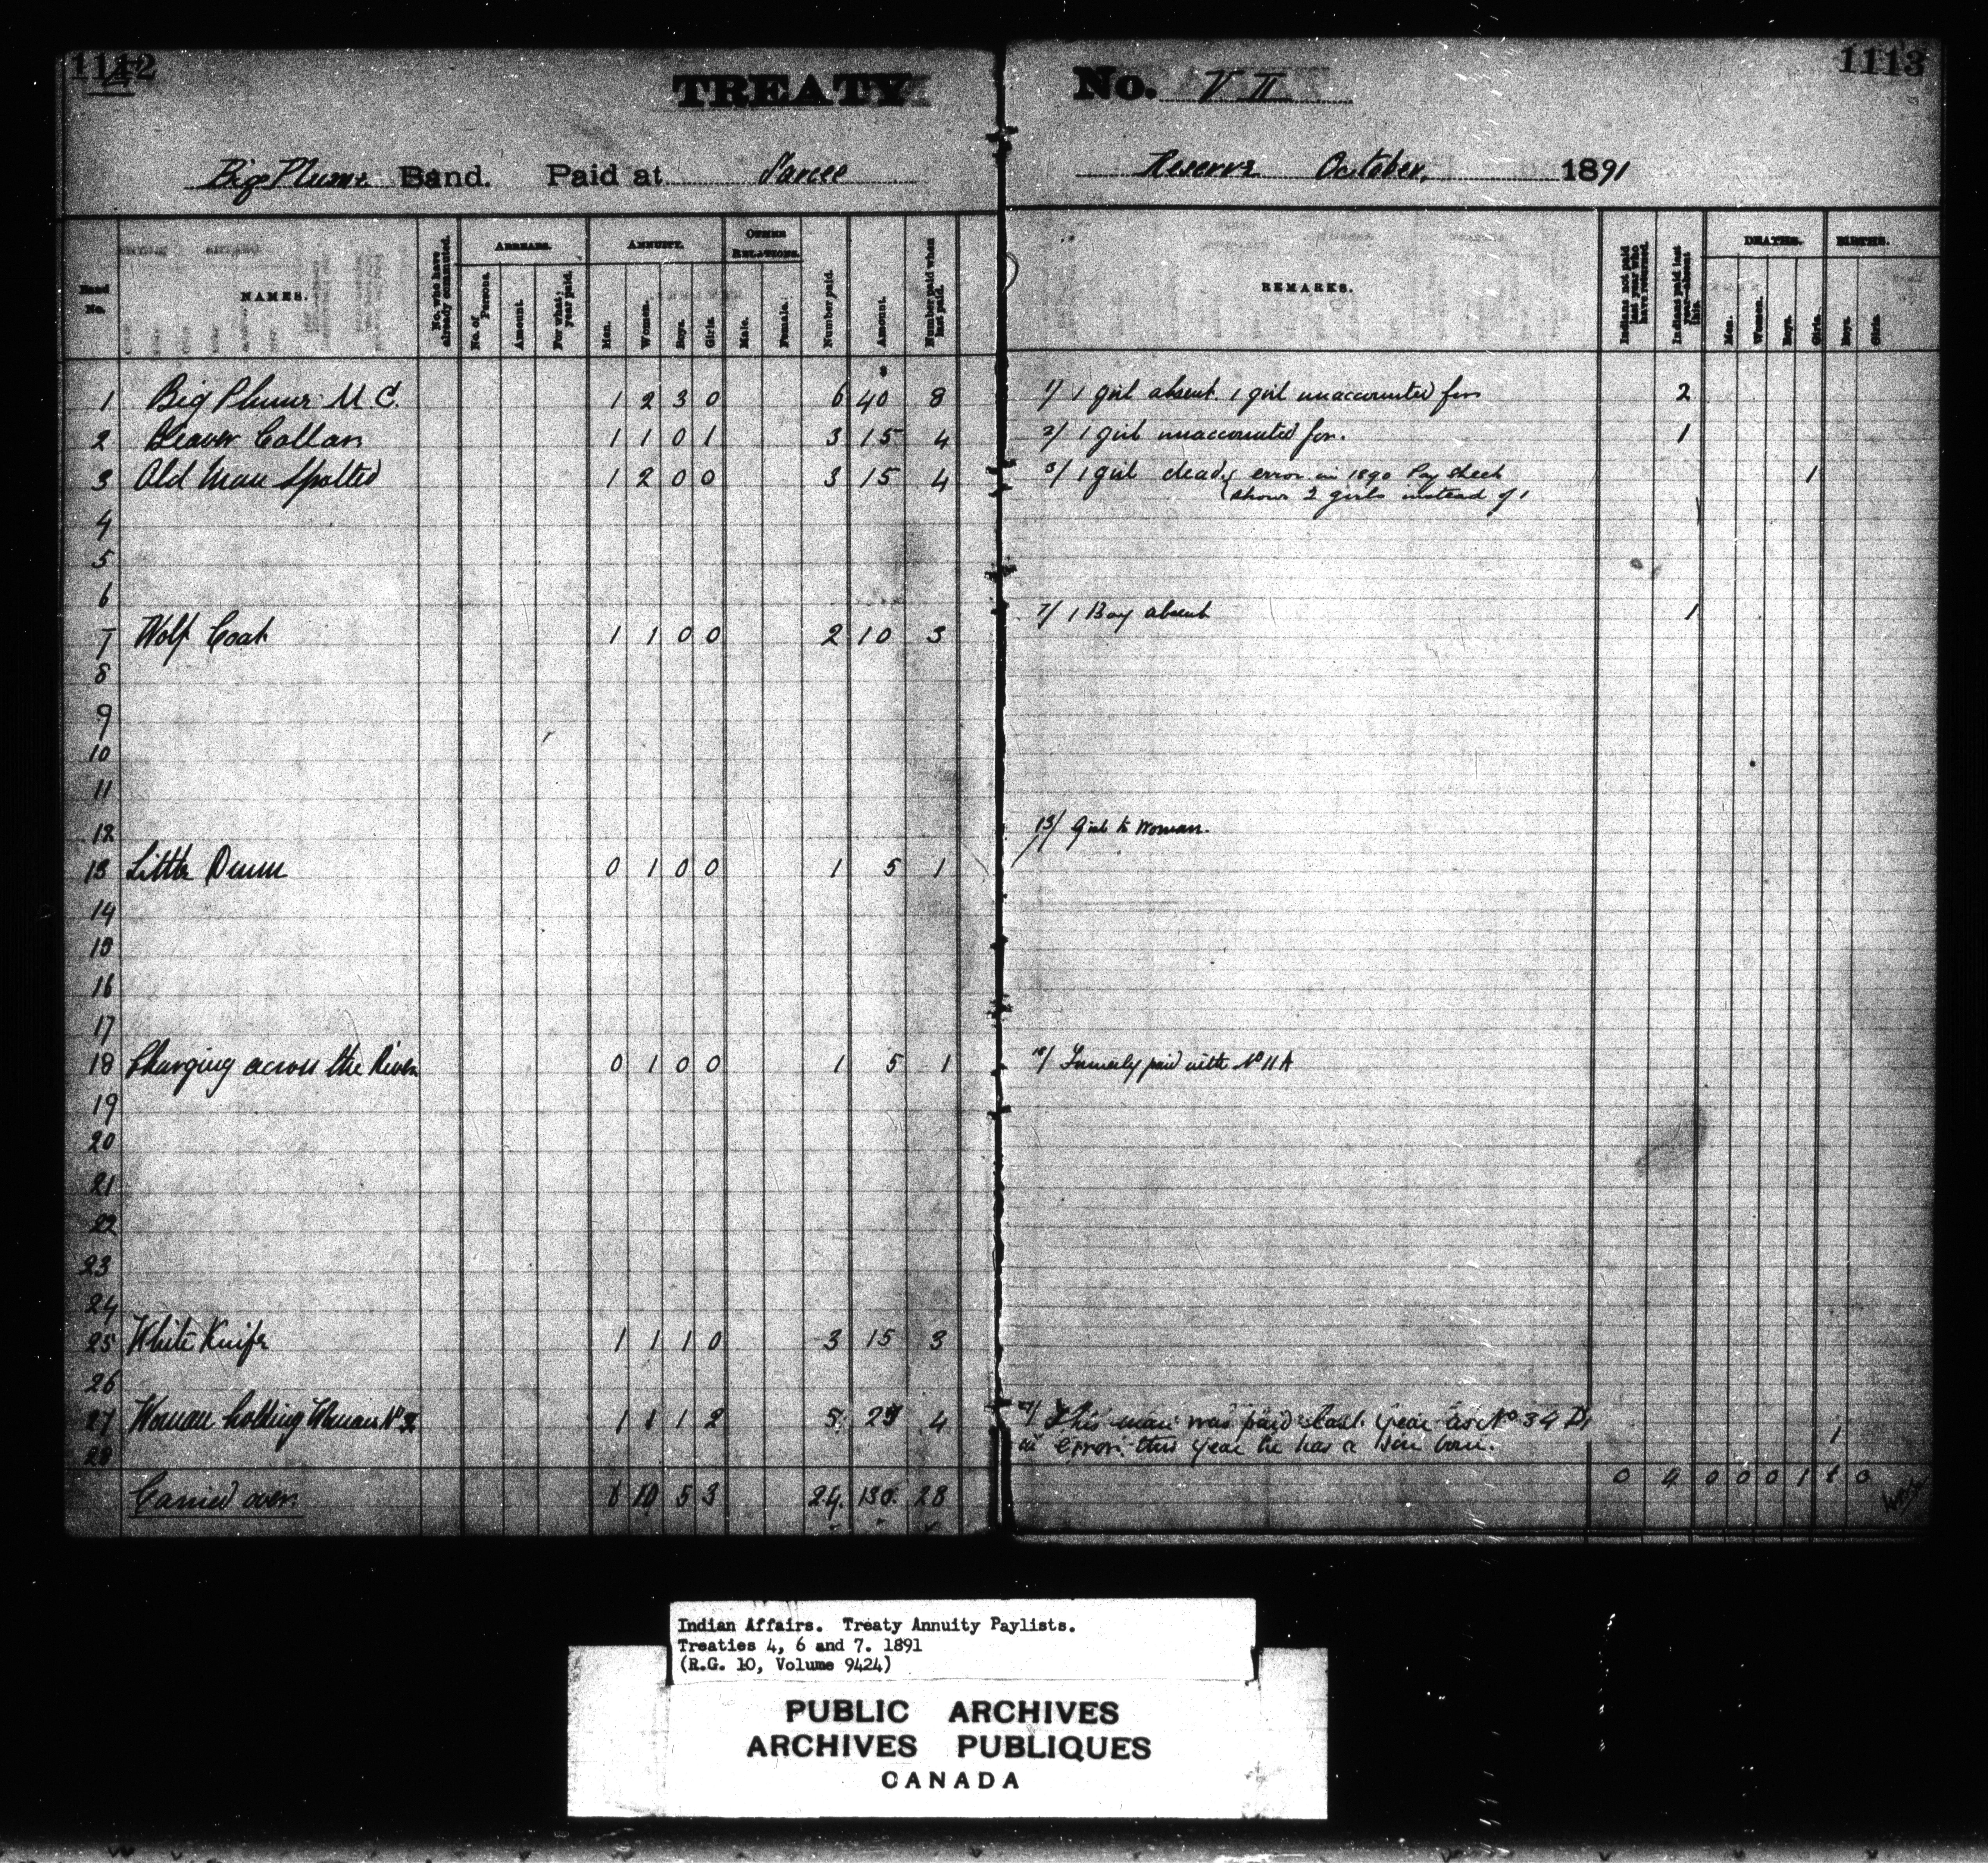 1112
1113
TREATY No. VII
Big Plume Band. Paid at Sarcee Reserve October, 1891
Band No.
NAMES.
No. who have already commuted.
ARREARS.
No. of Persons.
Amount.
For what year paid.
ANNUITY.
Men.
Women.
Boys.
Girls.
OTHER RELATIONS.
Male.
Female.
Number paid.
Amount.
Number paid when last paid.
REMARKS.
Indians not paid last year who have returned.
Indians paid last year—absent this.
DEATHS.
Men.
Women.
Boys.
Girls.
BIRTHS.
Boys.
Girls.
1 Big Plume M.C. 1 2 3 0 6 40 8 1/ 1 girl absent. 1 girl unaccounted for 2
2 Beaver Collar 1 1 0 1 3 15 4 2/ 1 girl unaccounted for. 1
3 Old Man Spotted 1 2 0 0 3 15 4 3/ 1 girl dead, error in 1890 Pay Sheet 1
shows 2 girls instead of 1
4
5
6
7 Wolf Coat 1 1 0 0 2 10 3 7/ 1 Boy absent 1
8
9
10
11
12
13 Little Drum 0 1 0 0 1 5 1 13/ Girl to Woman.
14
15
16
17
18 Charging across the River 0 1 0 0 1 5 1 18/ Formerly paid with No 11A
19
20
21
22
23
24
25 White Knife 1 1 1 0 3 15 3
26
27 Woman holding Woman No 2 1 1 1 2 5 25 4 27/ This man was paid last year as No 34 D,
28 in error. this year he has a son born. 1
Carried over 6 10 5 3 24. 130. 28 0 4 0 0 0 1 1 0
Indian Affairs. Treaty Annuity Paylists.
Treaties 4, 6 and 7. 1891
(R.G. 10, Volume 9424)
PUBLIC ARCHIVES
ARCHIVES PUBLIQUES
CANADA